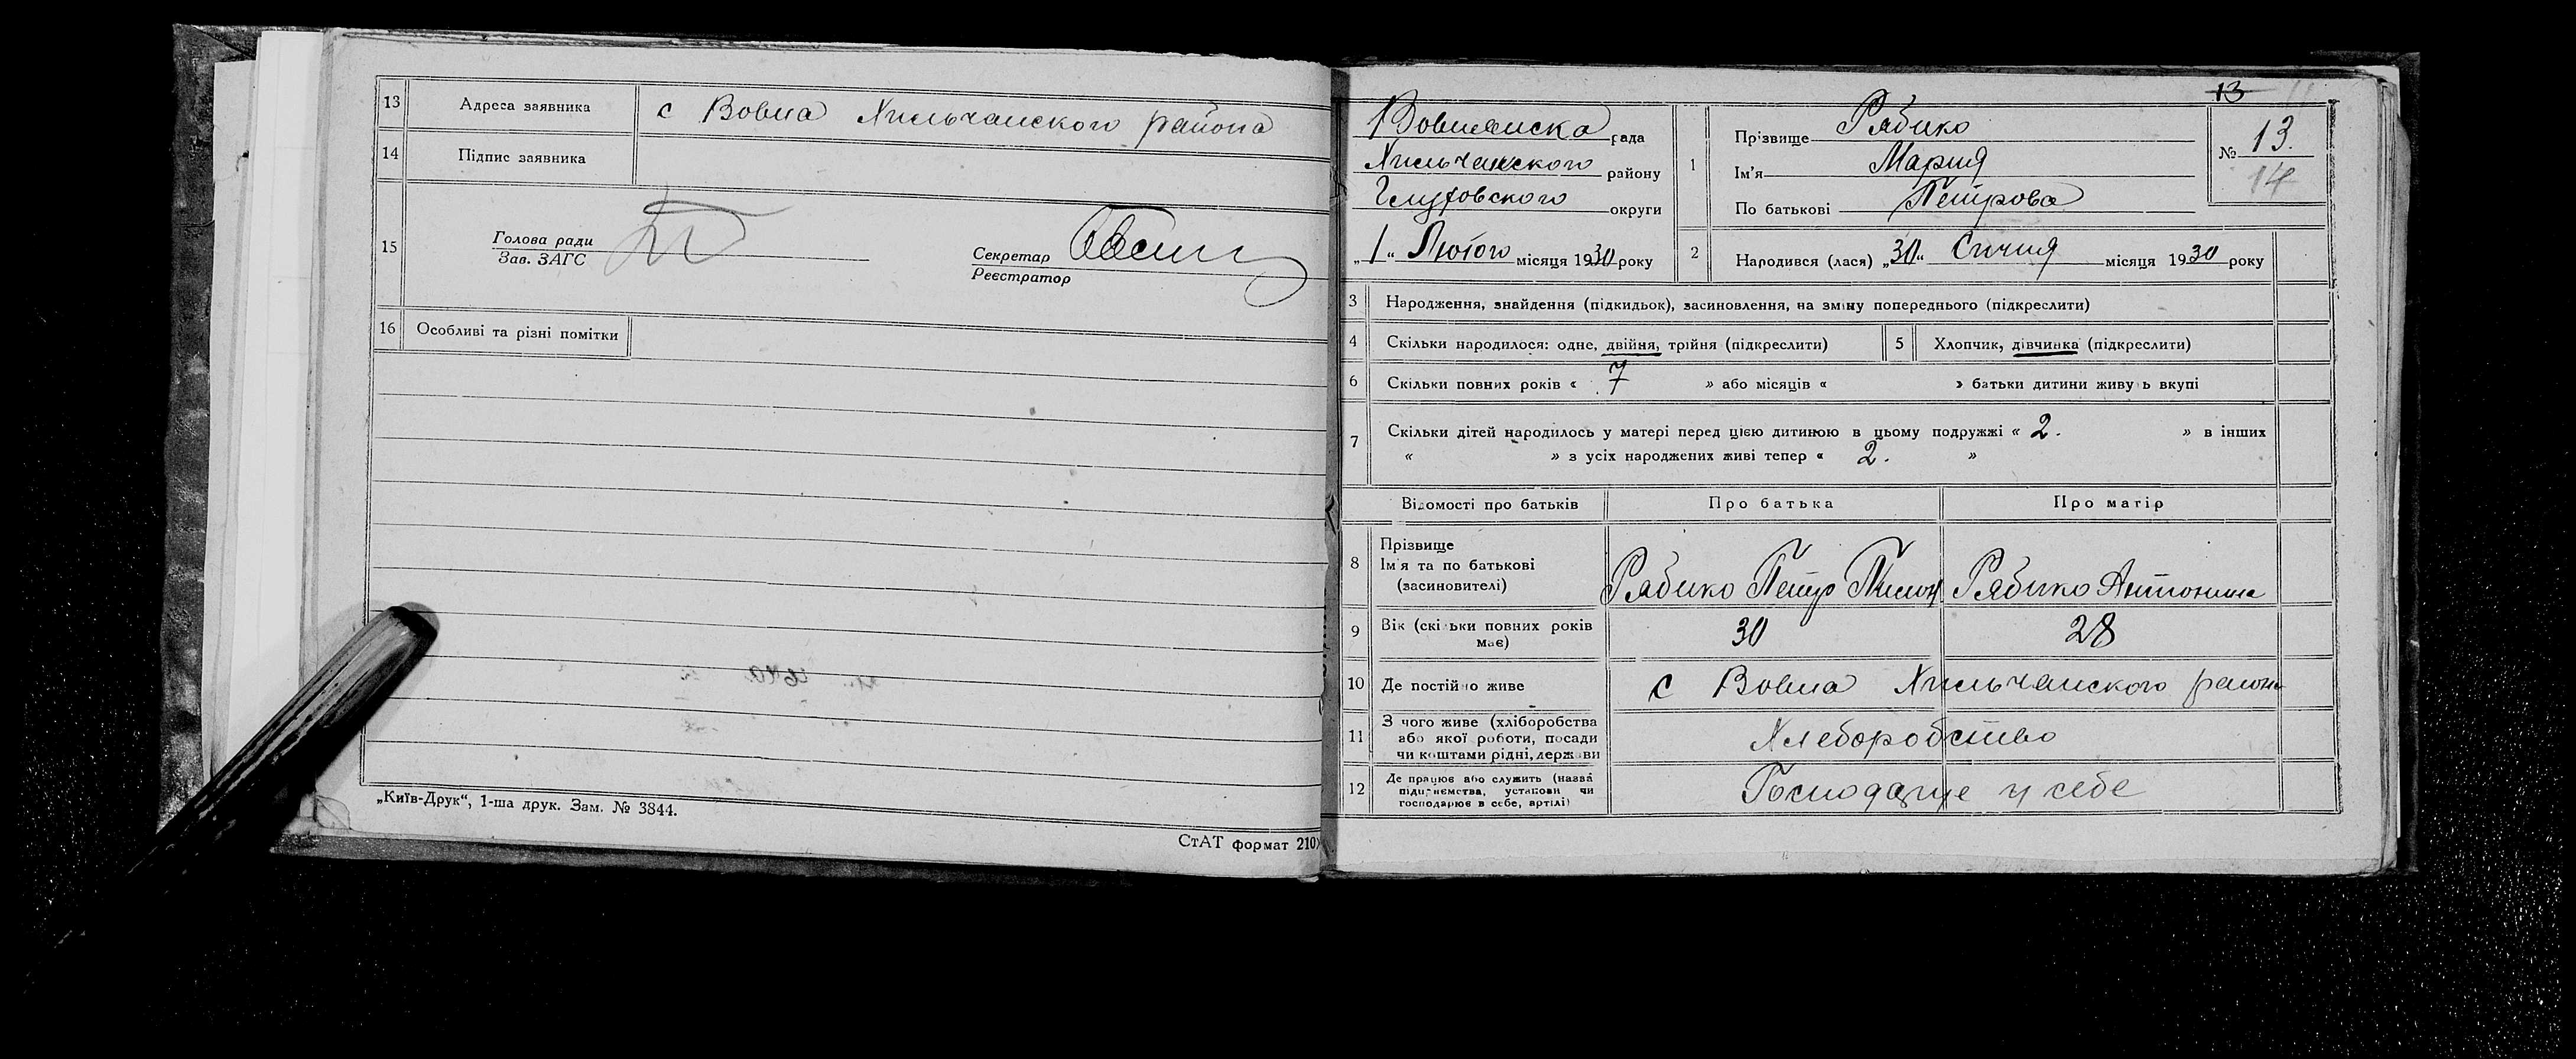 13 Адреса заявника с Вовна Хильчанского района
14 Підпис заявника
15 Голова ради
Зав. ЗАГС
Секретар
Реєстратор
16 Особливі та різні помітки
„Київ-Друк“, 1-ша друк. Зам. № 3844.
СтАТ формат 210
13
Вовнянска рада
Хильчанского району
Глуховского округи
„1“ Лютого місяця 1930 року
1 Прізвище Рябико
Ім'я Мария
По батькові Петрова
№ 13.
14
2 Народився (лася) „30“ Сичня місяця 1930 року
3 Народження, знайдення (підкидьок), засиновлення, на зміну попереднього (підкреслити)
4 Скільки народилося: одне, двійня, трійня (підкреслити)
5 Хлопчик, дівчинка (підкреслити)
6 Скільки повних років « 7 » або місяців « » батьки дитини живуть вкупі
7 Скільки дітей народилось у матері перед цією дитиною в цьому подружжі « 2. » в інших
« » з усіх народжених живі тепер « 2. »
Відомості про батьків Про батька Про матір
8 Прізвище
Ім'я та по батькові
(засиновителі)
Рябико Петр Пилип Рябико Антонина
9 Вік (скільки повних років
має)
30 28
10 Де постійно живе с Вовна Хильчанского района
11 З чого живе (хліборобства
або якої роботи, посади
чи коштами рідні, держави
Хлеборобство
12 Де працює або служить (назва
підприємства, установи чи
господарює в себе, артілі)
Господарще у себе